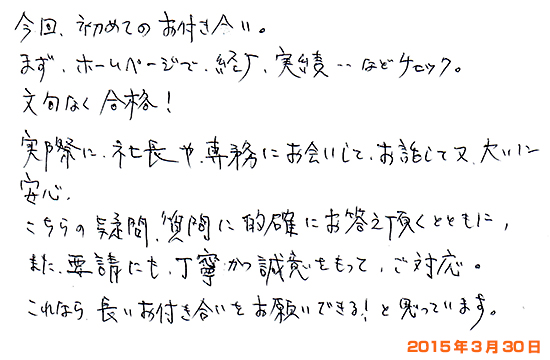 今回、初めてのお付き合い。
まず、ホームページで、経歴、実績‥などチェック。
文句なく合格!
実際に、社長や専務にお会いして、お話して又、大いに
安心。
こちらの疑問、質問に的確にお答え頂くとともに、
また、要請にも、丁寧かつ誠意をもって、ご対応。
これなら、長いお付き合いをお願いできる!と思っています。
2015年3月30日